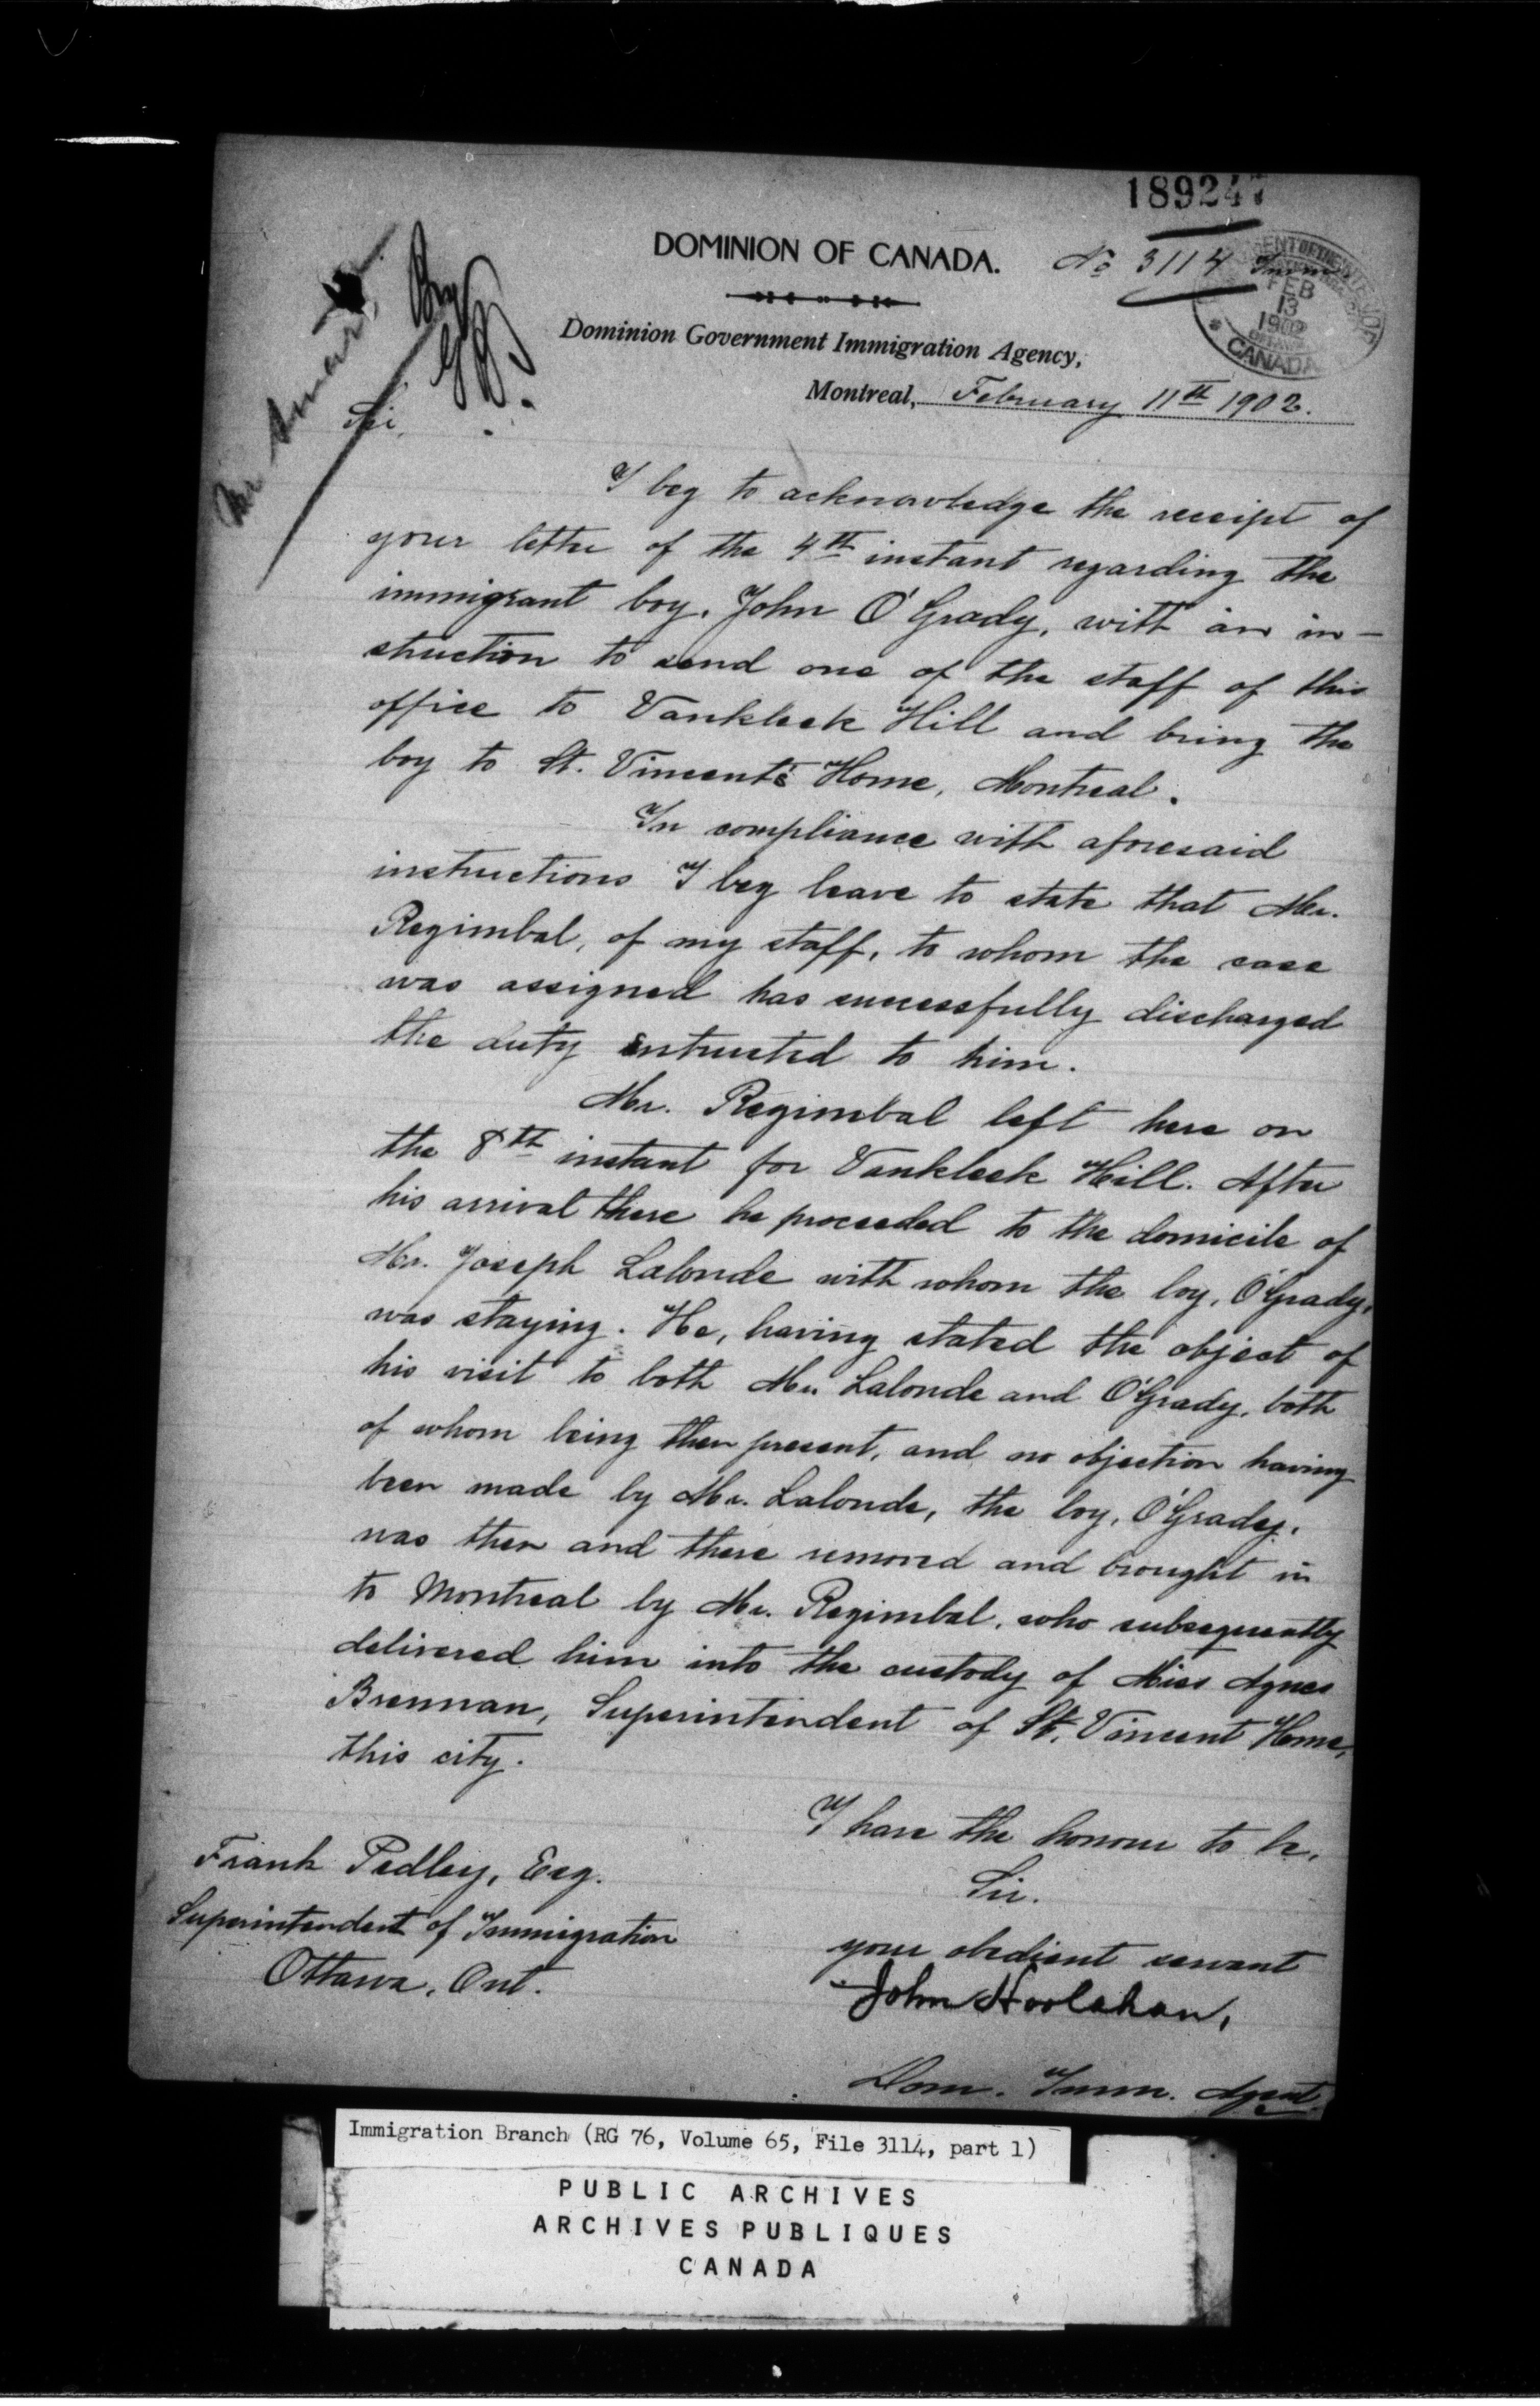 189247
DOMINION OF CANADA.
No 3114 Imm
FEB
13
1902
CANADA
Dominion Government Immigration Agency,
Montreal, February 11th 1902.
Mr Smart
Sir,
I beg to acknowledge the receipt of
your letter of the 4th instant regarding the
immigrant boy, John O'Grady, with an in-
struction to send one of the staff of this
office to Vankleek Hill and bring the
boy to St. Vincent's Home, Montreal.
In compliance with aforesaid
instructions I beg leave to state that Mr.
Regimbal, of my staff, to whom the case
was assigned has successfully discharged
the duty entrusted to him.
Mr. Regimbal left here on
the 8th instant for Vankleek Hill. After
his arrival there he proceeded to the domicile of
Mr. Joseph Lalonde with whom the boy, O'Grady,
was staying. He, having stated the object of
his visit to both Mr. Lalonde and O'Grady, both
of whom being then present, and no objection having
been made by Mr. Lalonde, the boy, O'Grady,
was then and there removed and brought in
to Montreal by Mr. Regimbal, who subsequently
delivered him into the custody of Miss Agnes
Brennan, Superintendent of St. Vincent Home,
this city.
I have the honour to be,
Sir.
your obedient servant
John Hoolahan,
Dom. Imm. Agent.
Frank Pedley, Esq.
Superintendent of Immigration
Ottawa, Ont.
Immigration Branch (RG 76, Volume 65, File 3114, part 1)
PUBLIC ARCHIVES
ARCHIVES PUBLIQUES
CANADA